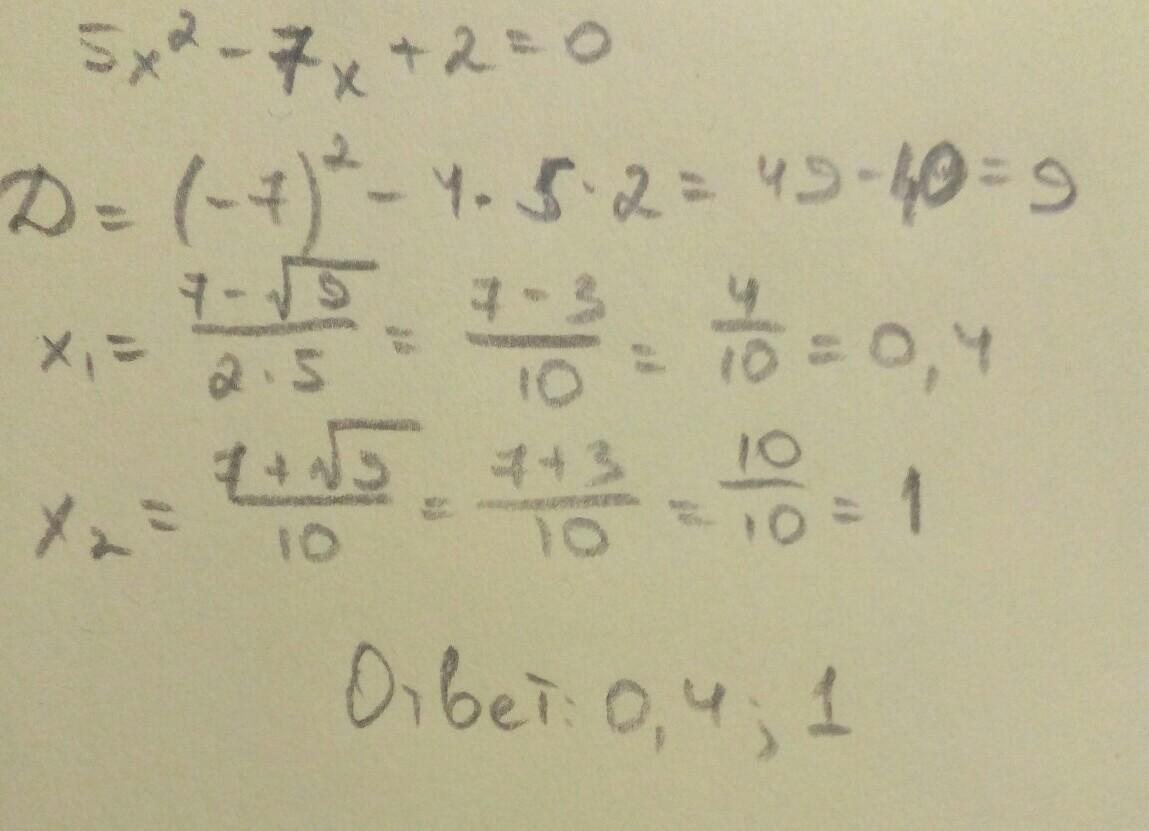 5x² - 7x + 2 = 0
D = (-7)² - 4 · 5 · 2 = 49 - 40 = 9
x₁ = (7 - √9)/(2 · 5) = (7 - 3)/10 = 4/10 = 0,4
x₂ = (7 + √9)/10 = (7 + 3)/10 = 10/10 = 1
Ответ: 0,4; 1